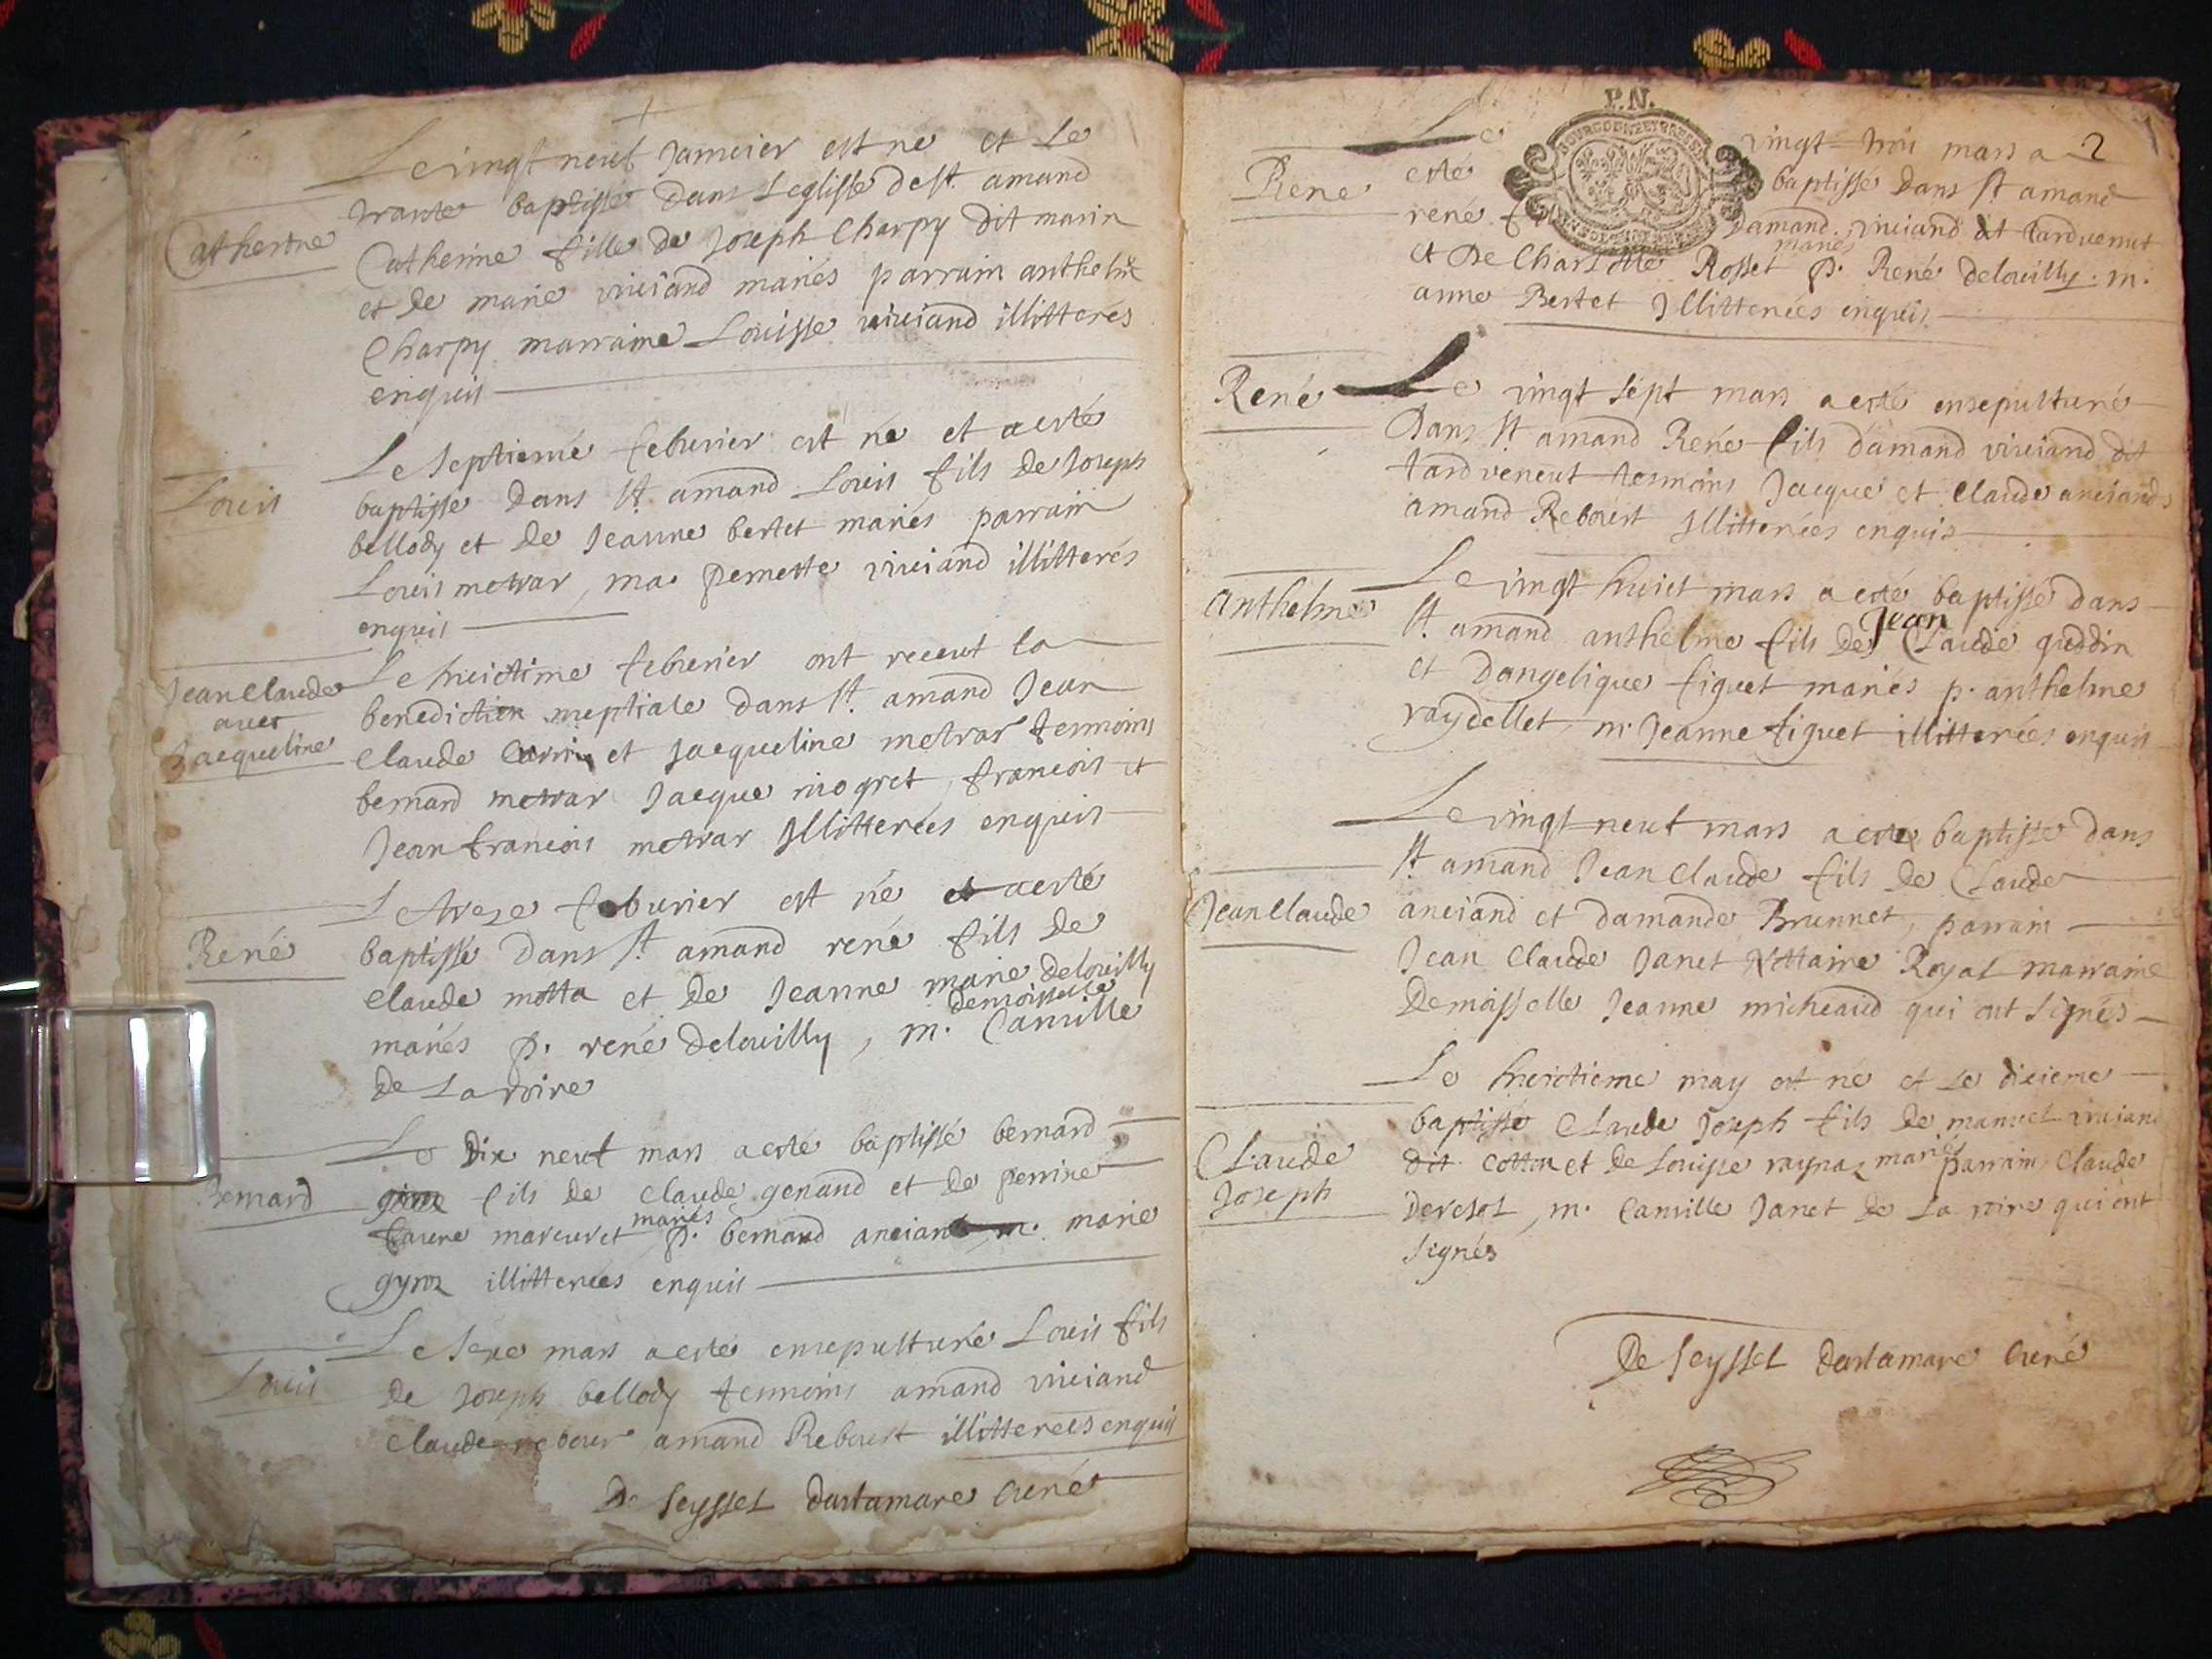 Le vingt neuf Januier est né et Le
trante baptissé Dans Leglisse de st. amand
Catherine
Catherine fille de Joseph Charpy Dit marin
et de marie viuiand mariés parrain anthelme
Charpy marraine Louisse viuiand illitterés
enquis
Le septiemé feburier est né et a esté
Louis
baptissé Dans st. amand Louis fils de Joseph
bellody et de Jeanne bertet mariés parrain
Louis metrar, ma. pernette viuiand illitterés
enquis
Le huictime feburier ont receut la
Jean Claude
auec
Jacqueline
benediction nuptiale Dans st. amand Jean
Claude et Jacqueline metrar tesmoins
bernard metrar Jacque niogret, francois et
Jean francois metrar Illitterées enquis
Le treze feburier est né et a esté
René
baptissé Dans st. amand rené fils de
Claude motta et de Jeanne marie delouilly
demoisselle
mariés p. rené delouilly, m. Camille
de La poire
Le Dix neuf mars a esté baptissé bernard
Bernard
fils de Claude genand et de perrine
mariés
faure marcuret p. bernard anciand m. marie
gyroz illitterées enquis
Le seze mars a esté ensepulturé Louis fils
Louis
de Joseph bellody tesmoins amand viuiand
Claude rebour amand Rebourt illitterées enquis
De Seyssel dartamare Curé
P.N.
2
Le vingt trois mars a
René
esté baptissé dans st. amand
rené damand viuiand dit tardvenut
mariés
et De Charlotte Rosset p. René delouilly. m.
anne Bertet Jllitterées enquis
René
Le vingt sept mars a esté ensepulturé
Dans st. amand René fils damand viuiand dit
tardveneut tesmoins Jacque et Claude anciands
amand Rebourt Jllitterées enquis
anthelme
Le vingt huict mars a esté baptissé dans
Jean
st. amand anthelme fils de Claude guddin
et Dangelique figuet mariés p. anthelme
raydellet, m. Jeanne figuet illitterées enquis
Le vingt neuf mars a esté baptissé dans
st. amand Jean Claude fils de Claude
Jean Claude
anciand et damande Brunnet, parrain
Jean Claude Janet Nottaire Royal marraine
Demoisselle Jeanne micheaud qui ont signés
Le huictieme may est né et Le dixieme
Claude
Joseph
baptissé Claude Joseph fils de manuel viuiand
mariés
dit cotton et de Louisse raynaz parrain Claude
Deresol, m. Camille Janet de La poire qui ont
signés
De Seyssel dartamare Curé